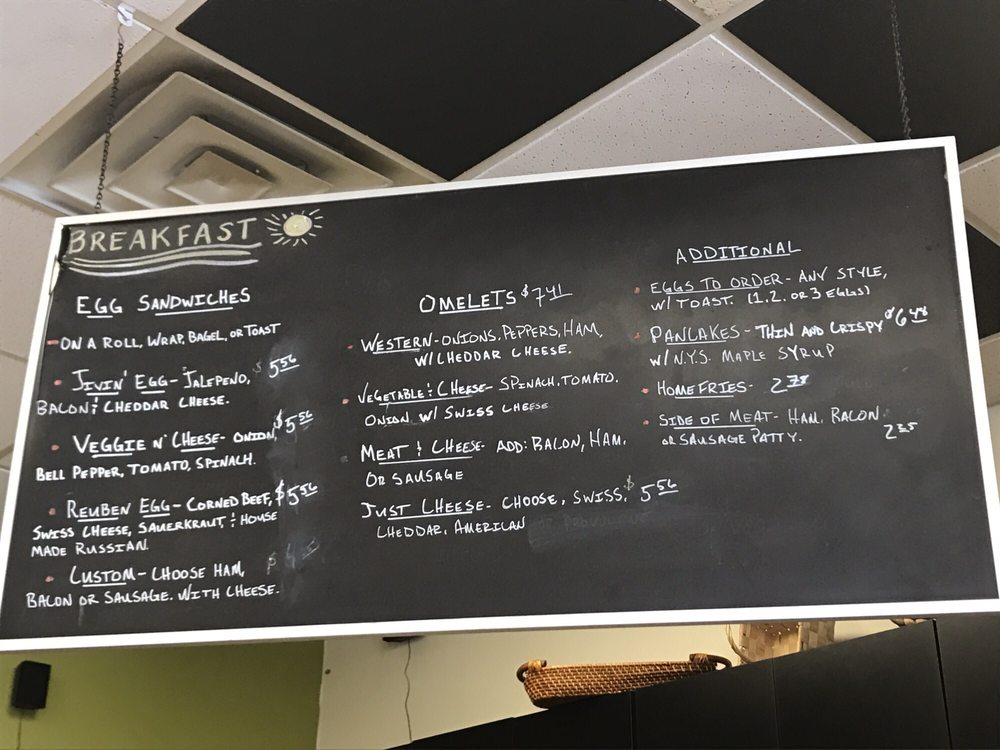 BREAKFAST
EGG SANDWICHES
ON A ROLL, WRAP, BAGEL, OR TOAST
JIVIN' EGG - JALEPENO, $5.56
BACON & CHEDDAR CHEESE.
VEGGIE N' CHEESE - ONION, $5.56
BELL PEPPER, TOMATO, SPINACH.
REUBEN EGG - CORNED BEEF, $5.56
SWISS CHEESE, SAUERKRAUT, & HOUSE
MADE RUSSIAN.
CUSTOM - CHOOSE HAM,
BACON OR SAUSAGE. WITH CHEESE.
OMELETS $7.41
WESTERN - ONIONS, PEPPERS, HAM,
W/ CHEDDAR CHEESE.
VEGETABLE & CHEESE - SPINACH, TOMATO.
ONION W/ SWISS CHEESE
MEAT & CHEESE - ADD: BACON, HAM,
OR SAUSAGE
JUST CHEESE - CHOOSE, SWISS, $5.56
CHEDDAR, AMERICAN
ADDITIONAL
EGGS TO ORDER - ANY STYLE,
W/ TOAST. (1. 2. OR 3 EGGS)
PANCAKES - THIN AND CRISPY $6.48
W/ N.Y.S. MAPLE SYRUP
HOME FRIES - 2.78
SIDE OF MEAT - HAM, BACON
OR SAUSAGE PATTY.